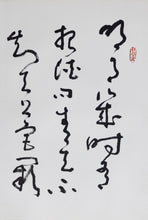 明月幾时有
把酒问青天不
知天上宫阙